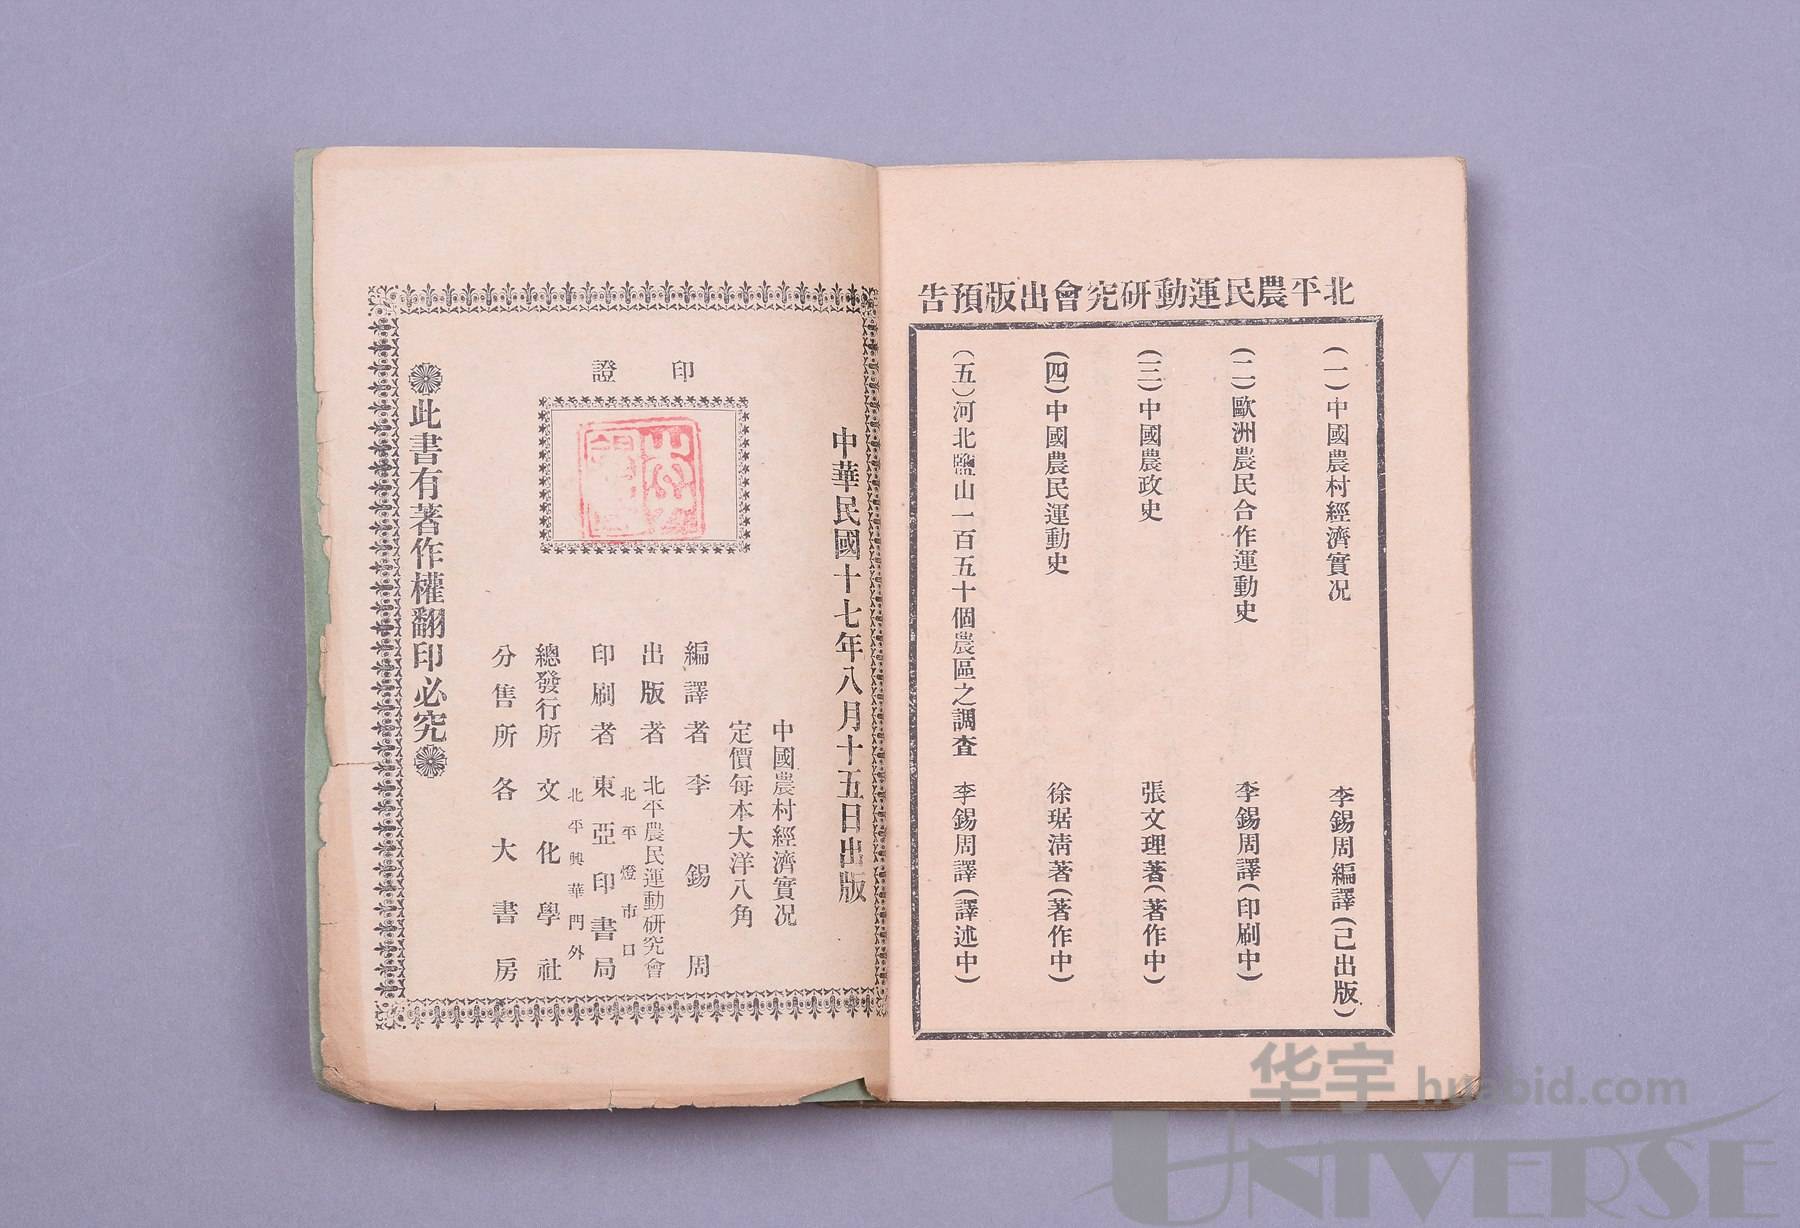 北平農民運動研究會出版預告
(一)中國農村經濟實况 李錫周編譯(已出版)
(二)歐洲農民合作運動史 李錫周譯(印刷中)
(三)中國農政史 張文理著(著作中)
(四)中國農民運動史 徐琚淸著(著作中)
(五)河北鹽山一百五十個農區之調查 李錫周譯(譯述中)
中華民國十七年八月十五日出版
印證
中國農村經濟實况
定價每本大洋八角
編譯者 李錫周
出版者 北平農民運動研究會
北平燈市口
印刷者 東亞印書局
北平興華門外
總發行所 文化學社
分售所 各大書房
此書有著作權翻印必究
华宇 huabid.com
UNIVERSE